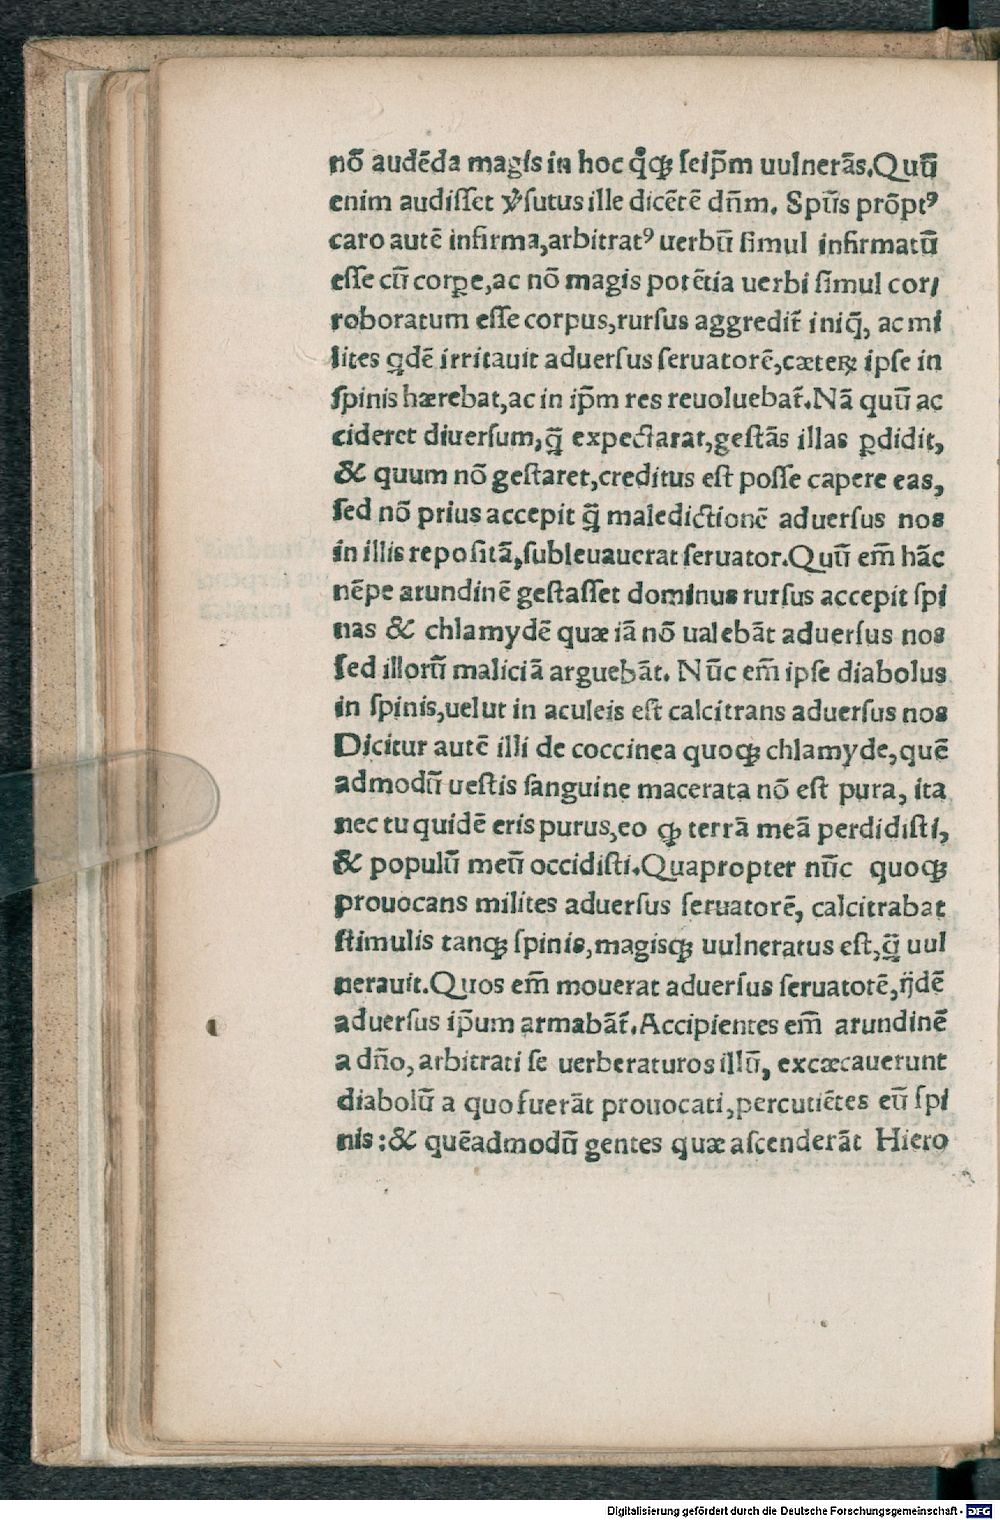 nō audēda magis in hoc qͦqꝫ ſeip̄m uulnerās.Quū
enim audiſſet ꝟſutus ille dicētē dn̄m. Spūs prōptꝰ
caro autē infirma,arbitratꝰ uerbū ſimul infirmatū
eſſe cū corꝑe,ac nō magis potētia uerbi ſimul cor/
roboratum eſſe corpus,rurſus aggredit᷑ iniq̄, ac mi
lites qdē irritauit aduerſus ſeruatorē,cæteꝝ ipſe in
ſpinis hærebat,ac in ip̄m res reuoluebat᷑.Nā quū ac
cideret diuerſum,q̄ expectarat,geſtās illas ꝑdidit,
& quum nō geſtaret,creditus eſt poſſe capere eas,
ſed nō prius accepit q̄ maledictionē aduerſus nos
in illis repoſitā,ſubleuauerat ſeruator.Quū em̄ hāc
nēpe arundinē geſtaſſet dominus rurſus accepit ſpi
nas & chlamydē quæ iā nō ualebāt aduerſus nos
ſed illorū maliciā arguebāt. Nūc em̄ ipſe diabolus
in ſpinis,uelut in aculeis eſt calcitrans aduerſus nos
Dicitur autē illi de coccinea quoqꝫ chlamyde,quē
admodū ueſtis ſanguine macerata nō eſt pura, ita
nec tu quidē eris purus,eo ꝙ terrā meā perdidiſti,
& populū meū occidiſti.Quapropter nūc quoqꝫ
prouocans milites aduerſus ſeruatorē, calcitrabat
ſtimulis tanqꝫ ſpinis,magisqꝫ uulneratus eſt,q̄ uul
nerauit.Quos em̄ mouerat aduerſus ſeruatotē,ijdē
aduerſus ip̄um armabāt᷑.Accipientes em̄ arundinē
a dn̄o, arbitrati ſe uerberaturos illū, excæcauerunt
diabolū a quo fuerāt prouocati,percutiētes eū ſpi
nis:& quēadmodū gentes quæ aſcenderāt Hiero
Digitalisierung gefördert durch die Deutsche Forschungsgemeinschaft - DFG